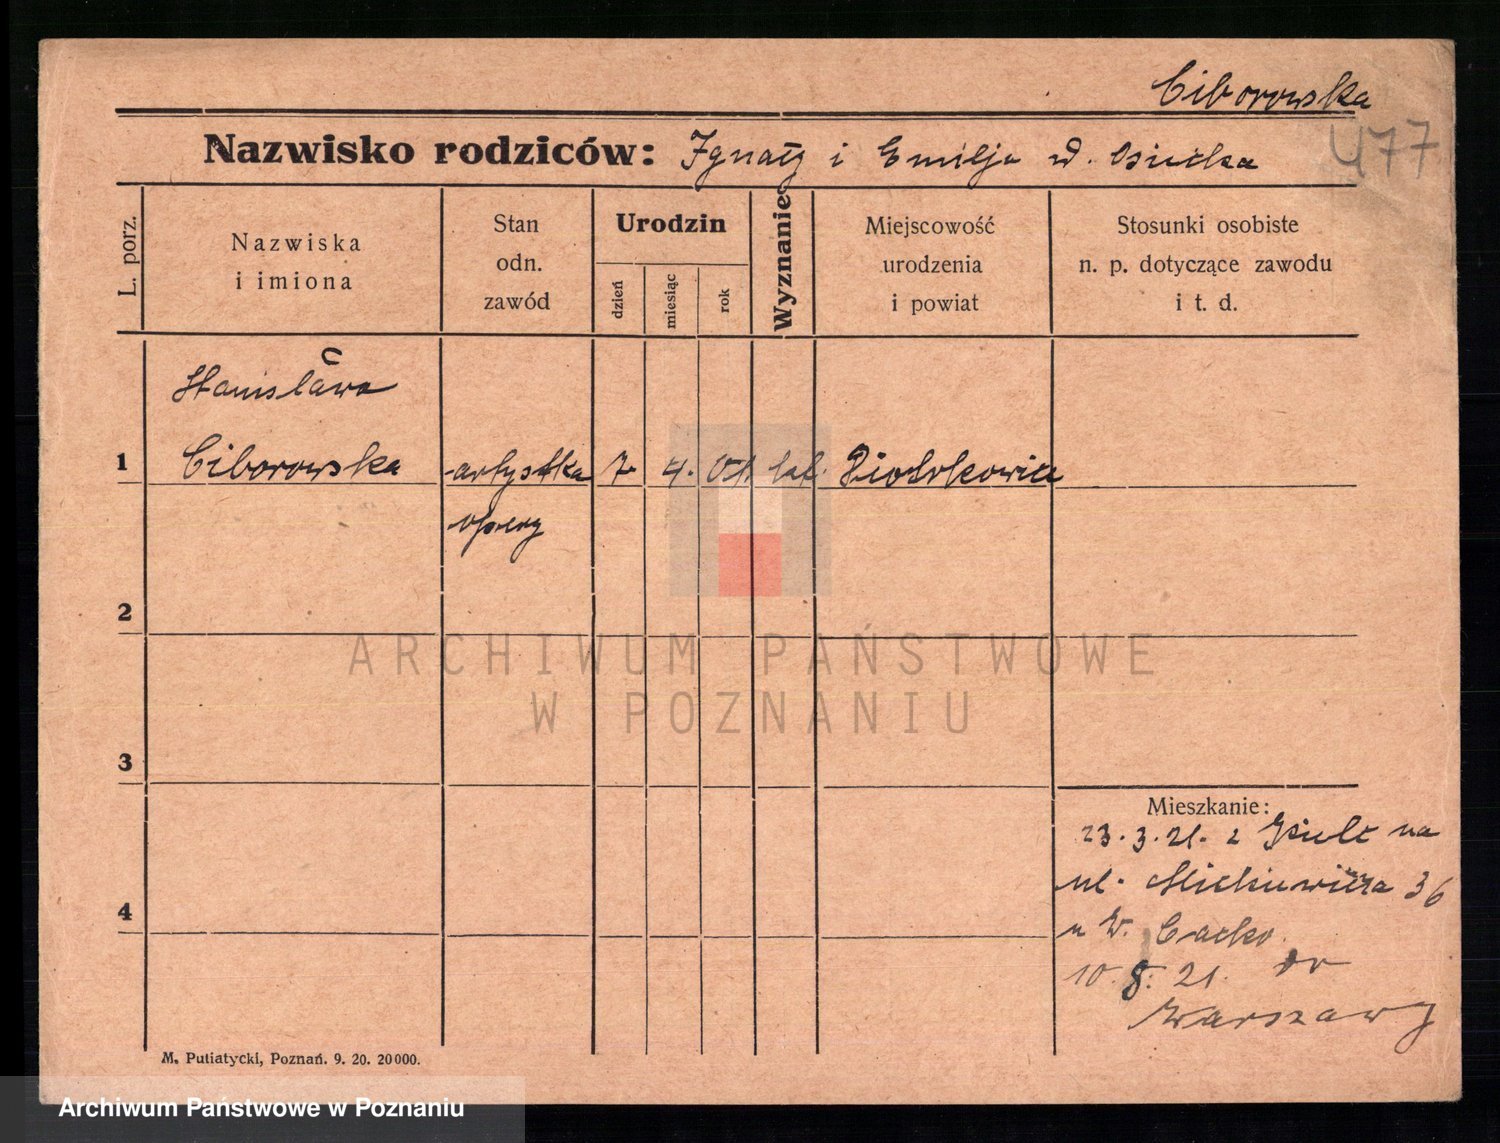 Ciborowska
477
Nazwisko rodziców: Ignacy i Emilja d. Osiecka
L. porz.
Nazwiska
i imiona
Stan
odn.
zawód
Urodzin
dzień
miesiąc
rok
Wyznanie
Miejscowość
urodzenia
i powiat
Stosunki osobiste
n. p. dotyczące zawodu
i t. d.
Stanisława
1 Ciborowska artystka 7. 4. 01 kat. Piotrkowice
opery
2
3
4
Mieszkanie:
23.3.21. z na
ul. Mickiewicza 36
u W. Cacko
10.8.21. do
Warszawy
M. Putiatycki, Poznań. 9. 20. 20000.
ARCHIWUM PAŃSTWOWE
W POZNANIU
Archiwum Państwowe w Poznaniu